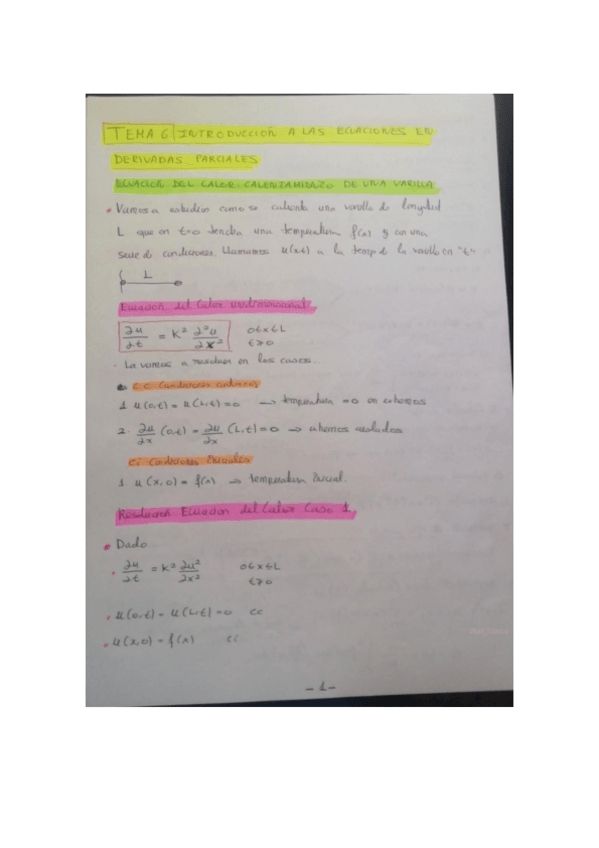 TEMA 6 INTRODUCCIÓN A LAS ECUACIONES EN
DERIVADAS PARCIALES
ECUACIÓN DEL CALOR CALENTAMIENTO DE UNA VARILLA
• Vamos a estudiar como se calienta una varilla de longitud
L que en t=0 tendrá una temperatura f(x) y con una
serie de condiciones. Llamamos u(x,t) a la temp de la varilla en "t"
L
Ecuación del Calor unidimensional
∂u/∂t = K² ∂²u/∂x² 0≤x≤L
t≥0
- La vamos a resolver en los casos.
• C.C. Condiciones
1. u(0,t) = u(L,t) = 0 → temperatura =0 en extremos
2. ∂u/∂x (0,t) = ∂u/∂x (L,t) = 0 → extremos aislados
C.i Condiciones Iniciales
1 u(x,0) = f(x) → temperatura inicial.
Resolución Ecuación del Calor Caso 1
• Dado
• ∂u/∂t = K² ∂u²/∂x² 0≤x≤L
t≥0
• u(0,t) = u(L,t) = 0 CC
• u(x,0) = f(x) ci
- 1 -